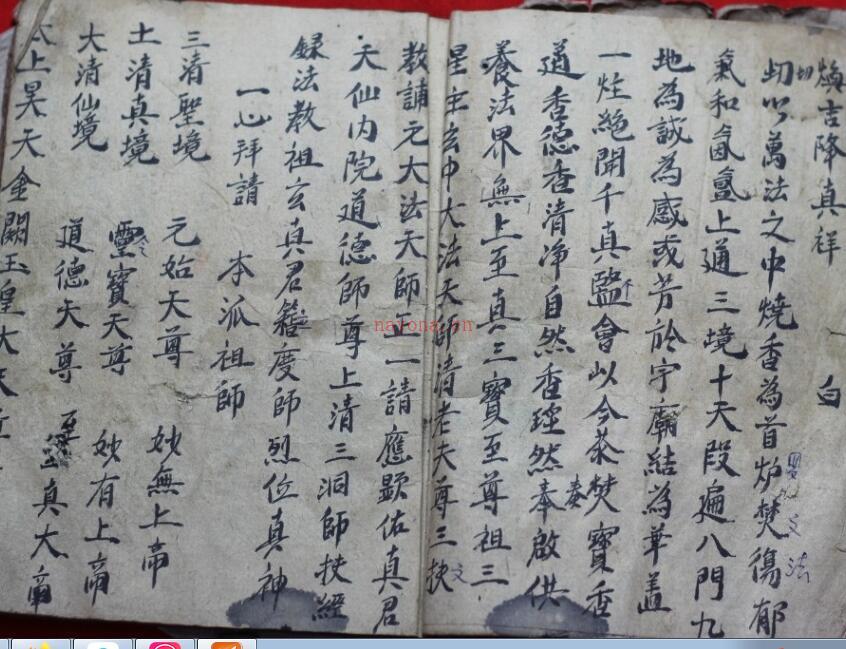 焕吉降真祥 白
切以萬法之中燒香為首炉焚傷郁
氣和氤氳上通三境十天段遍八門九
地為誠為感或芳於宇廟結為華盖
一炷絶聞千真監會以今恭焚寶香
道香德香清净自然香 然奉啟供
養法界無上至真三寶至尊祖三
星主玄中大法天師清老天尊三扶
教誦元大法天師正一請應顕佑真君
天仙内院道德師尊上清三洞師扶經
録法教祖玄真君籍度師烈位真神
一心拜請 本派祖師
三清聖境 元始天尊 妙無上帝
土清真境 靈寶天尊 妙有上帝
大清仙境 道德天尊 至真大帝
太上昊天金闕玉皇大天
nayona.cn